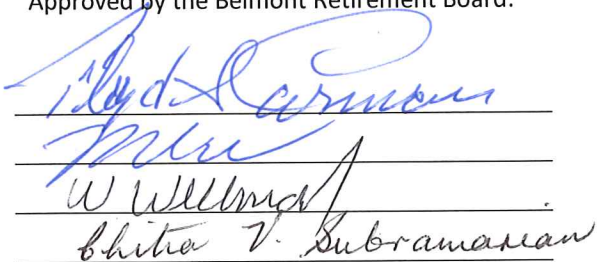 Approved by the Belmont Retirement Board:
Floyd S Carman
W Wellman
Chitra V. Subramanian